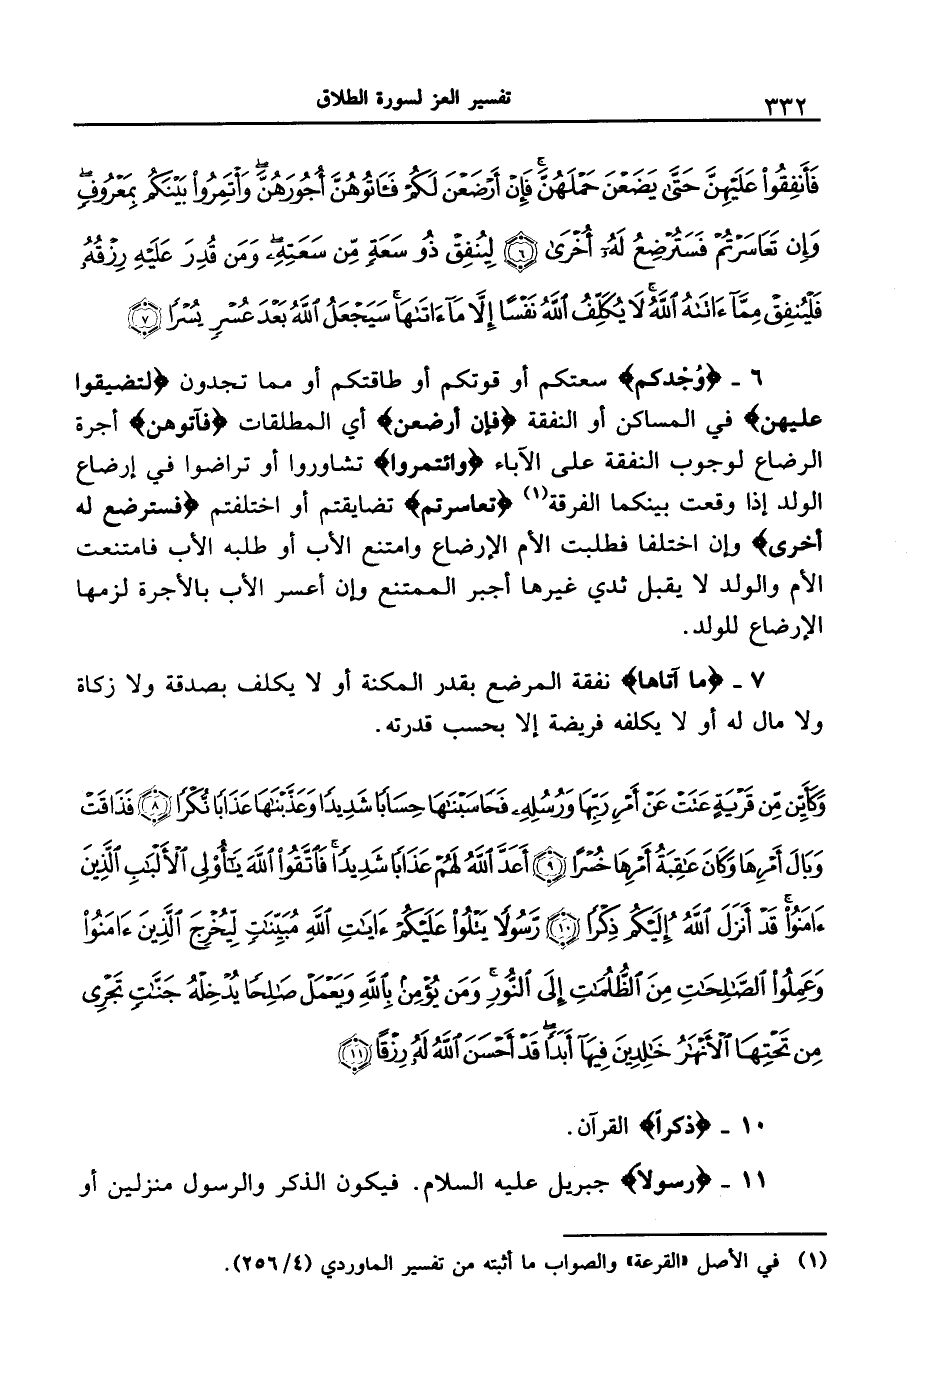 ٣٣٢ تفسير العز لسورة الطلاق
فَأَنفِقُوا۟ عَلَيْهِنَّ حَتَّىٰ يَضَعْنَ حَمْلَهُنَّ ۚ فَإِنْ أَرْضَعْنَ لَكُمْ فَـَٔاتُوهُنَّ أُجُورَهُنَّ ۖ وَأْتَمِرُوا۟ بَيْنَكُم بِمَعْرُوفٍ ۖ
وَإِن تَعَاسَرْتُمْ فَسَتُرْضِعُ لَهُۥٓ أُخْرَىٰ ﴿٦﴾ لِيُنفِقْ ذُو سَعَةٍ مِّن سَعَتِهِۦ ۖ وَمَن قُدِرَ عَلَيْهِ رِزْقُهُۥ
فَلْيُنفِقْ مِمَّآ ءَاتَىٰهُ ٱللَّهُ ۚ لَا يُكَلِّفُ ٱللَّهُ نَفْسًا إِلَّا مَآ ءَاتَىٰهَا ۚ سَيَجْعَلُ ٱللَّهُ بَعْدَ عُسْرٍ يُسْرًا ﴿٧﴾
٦ ـ ﴿وُجْدكم﴾ سعتكم أو قوتكم أو طاقتكم أو مما تجدون ﴿لتضيقوا
عليهن﴾ في المساكن أو النفقة ﴿فإن أرضعن﴾ أي المطلقات ﴿فآتوهن﴾ أجرة
الرضاع لوجوب النفقة على الآباء ﴿وائتمروا﴾ تشاوروا أو تراضوا في إرضاع
الولد إذا وقعت بينكما الفرقة(١) ﴿تعاسرتم﴾ تضايقتم أو اختلفتم ﴿فسترضع له
أخرى﴾ وإن اختلفا فطلبت الأم الإرضاع وامتنع الأب أو طلبه الأب فامتنعت
الأم والولد لا يقبل ثدي غيرها أجبر الممتنع وإن أعسر الأب بالأجرة لزمها
الإرضاع للولد.
٧ ـ ﴿ما آتاها﴾ نفقة المرضع بقدر المكنة أو لا يكلف بصدقة ولا زكاة
ولا مال له أو لا يكلفه فريضة إلا بحسب قدرته.
وَكَأَيِّن مِّن قَرْيَةٍ عَتَتْ عَنْ أَمْرِ رَبِّهَا وَرُسُلِهِۦ فَحَاسَبْنَٰهَا حِسَابًا شَدِيدًا وَعَذَّبْنَٰهَا عَذَابًا نُّكْرًا ﴿٨﴾ فَذَاقَتْ
وَبَالَ أَمْرِهَا وَكَانَ عَٰقِبَةُ أَمْرِهَا خُسْرًا ﴿٩﴾ أَعَدَّ ٱللَّهُ لَهُمْ عَذَابًا شَدِيدًا ۖ فَٱتَّقُوا۟ ٱللَّهَ يَٰٓأُو۟لِى ٱلْأَلْبَٰبِ ٱلَّذِينَ
ءَامَنُوا۟ ۚ قَدْ أَنزَلَ ٱللَّهُ إِلَيْكُمْ ذِكْرًا ﴿١٠﴾ رَّسُولًا يَتْلُوا۟ عَلَيْكُمْ ءَايَٰتِ ٱللَّهِ مُبَيِّنَٰتٍ لِّيُخْرِجَ ٱلَّذِينَ ءَامَنُوا۟
وَعَمِلُوا۟ ٱلصَّٰلِحَٰتِ مِنَ ٱلظُّلُمَٰتِ إِلَى ٱلنُّورِ ۚ وَمَن يُؤْمِنۢ بِٱللَّهِ وَيَعْمَلْ صَٰلِحًا يُدْخِلْهُ جَنَّٰتٍ تَجْرِى
مِن تَحْتِهَا ٱلْأَنْهَٰرُ خَٰلِدِينَ فِيهَآ أَبَدًا ۖ قَدْ أَحْسَنَ ٱللَّهُ لَهُۥ رِزْقًا ﴿١١﴾
١٠ ـ ﴿ذكراً﴾ القرآن.
١١ ـ ﴿رسولاً﴾ جبريل عليه السلام. فيكون الذكر والرسول منزلين أو
(١) في الأصل «القرعة» والصواب ما أثبته من تفسير الماوردي (٢٥٦/٤).